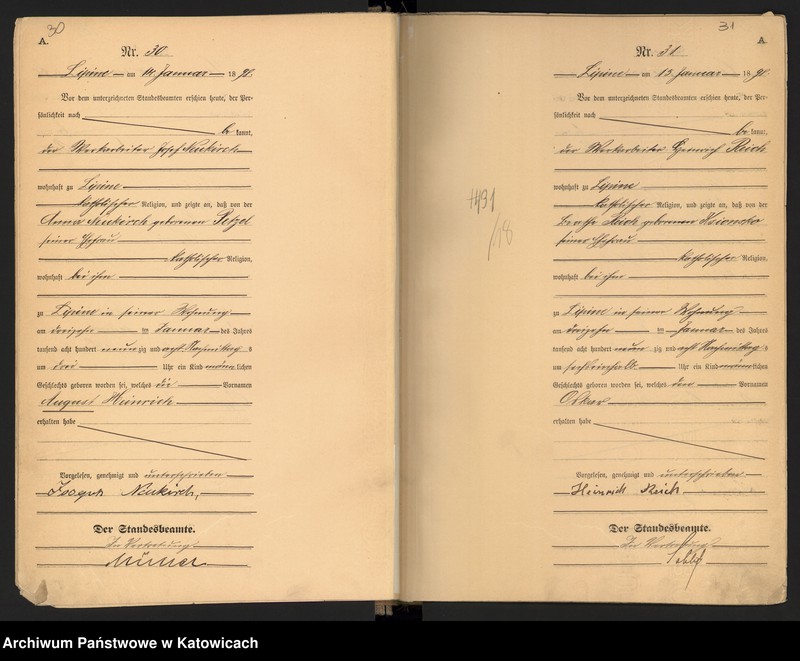 30
A.
Nr. 30
Lipine am 14. Januar 189
Vor dem unterzeichneten Standesbeamten erschien heute, der Per-
sönlichkeit nach
be kannt,
der Werkarbeiter Josef Neukirch
wohnhaft zu Lipine
katholischer Religion, und zeigte an, daß von der
Anna Neukirch geborenen Petzel
seiner Ehefrau
katholischer Religion,
wohnhaft bei ihm
zu Lipine in seiner Wohnung
am dreizehn ten Januar des Jahres
tausend acht hundert neun zig und acht Nachmittag s
um drei Uhr ein Kind männlichen
Geschlechts geboren worden sei, welches die Vornamen
August Heinrich
erhalten habe
Vorgelesen, genehmigt und unterschrieben
Neukirch,
Der Standesbeamte.
In Vertretung
31
A.
Nr. 31
Lipine am 15. Januar 189
Vor dem unterzeichneten Standesbeamten erschien heute, der Per-
sönlichkeit nach
be kannt,
der Werkarbeiter Heinrich Reich
wohnhaft zu Lipine
katholischer Religion, und zeigte an, daß von der
Reich geborenen
seiner Ehefrau
katholischer Religion,
wohnhaft bei ihm
zu Lipine in seiner Wohnung
am dreizehn ten Januar des Jahres
tausend acht hundert neun zig und acht Nachmittag s
um sechseinhalb Uhr ein Kind männlichen
Geschlechts geboren worden sei, welches den Vornamen
Oskar
erhalten habe
Vorgelesen, genehmigt und unterschrieben
Heinrich Reich
Der Standesbeamte.
In Vertretung
Archiwum Państwowe w Katowicach